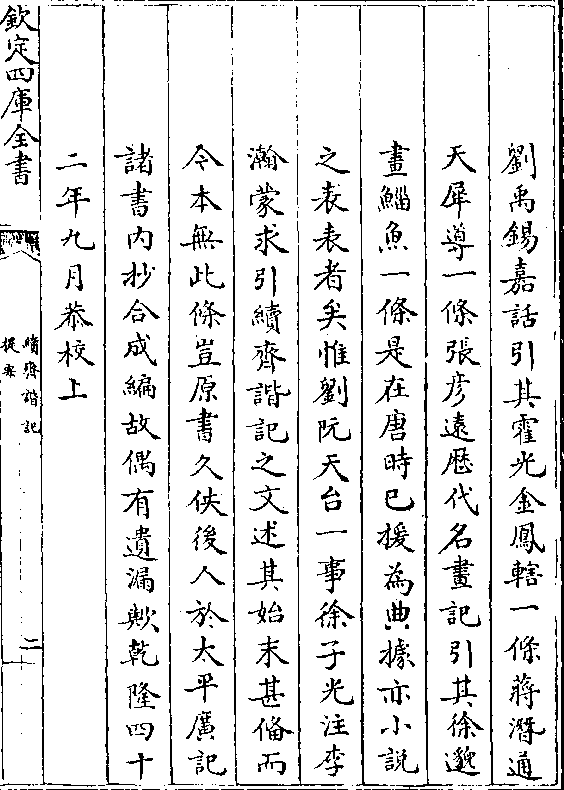 劉禹錫嘉話引其霍光金鳳轄一條蔣潛通
天犀導一條張彦遠歴代名畫記引其徐邈
畫鯔魚一條是在唐時已援為典據亦小説
之表表者矣惟劉阮天台一事徐子光注李
瀚蒙求引續齊諧記之文述其始末甚偹而
今本無此條豈原書久佚後人於太平廣記
諸書内抄合成編故偶有遺漏歟乾隆四十
二年九月恭校上
欽定四庫全書
續齊諧記
提要
二